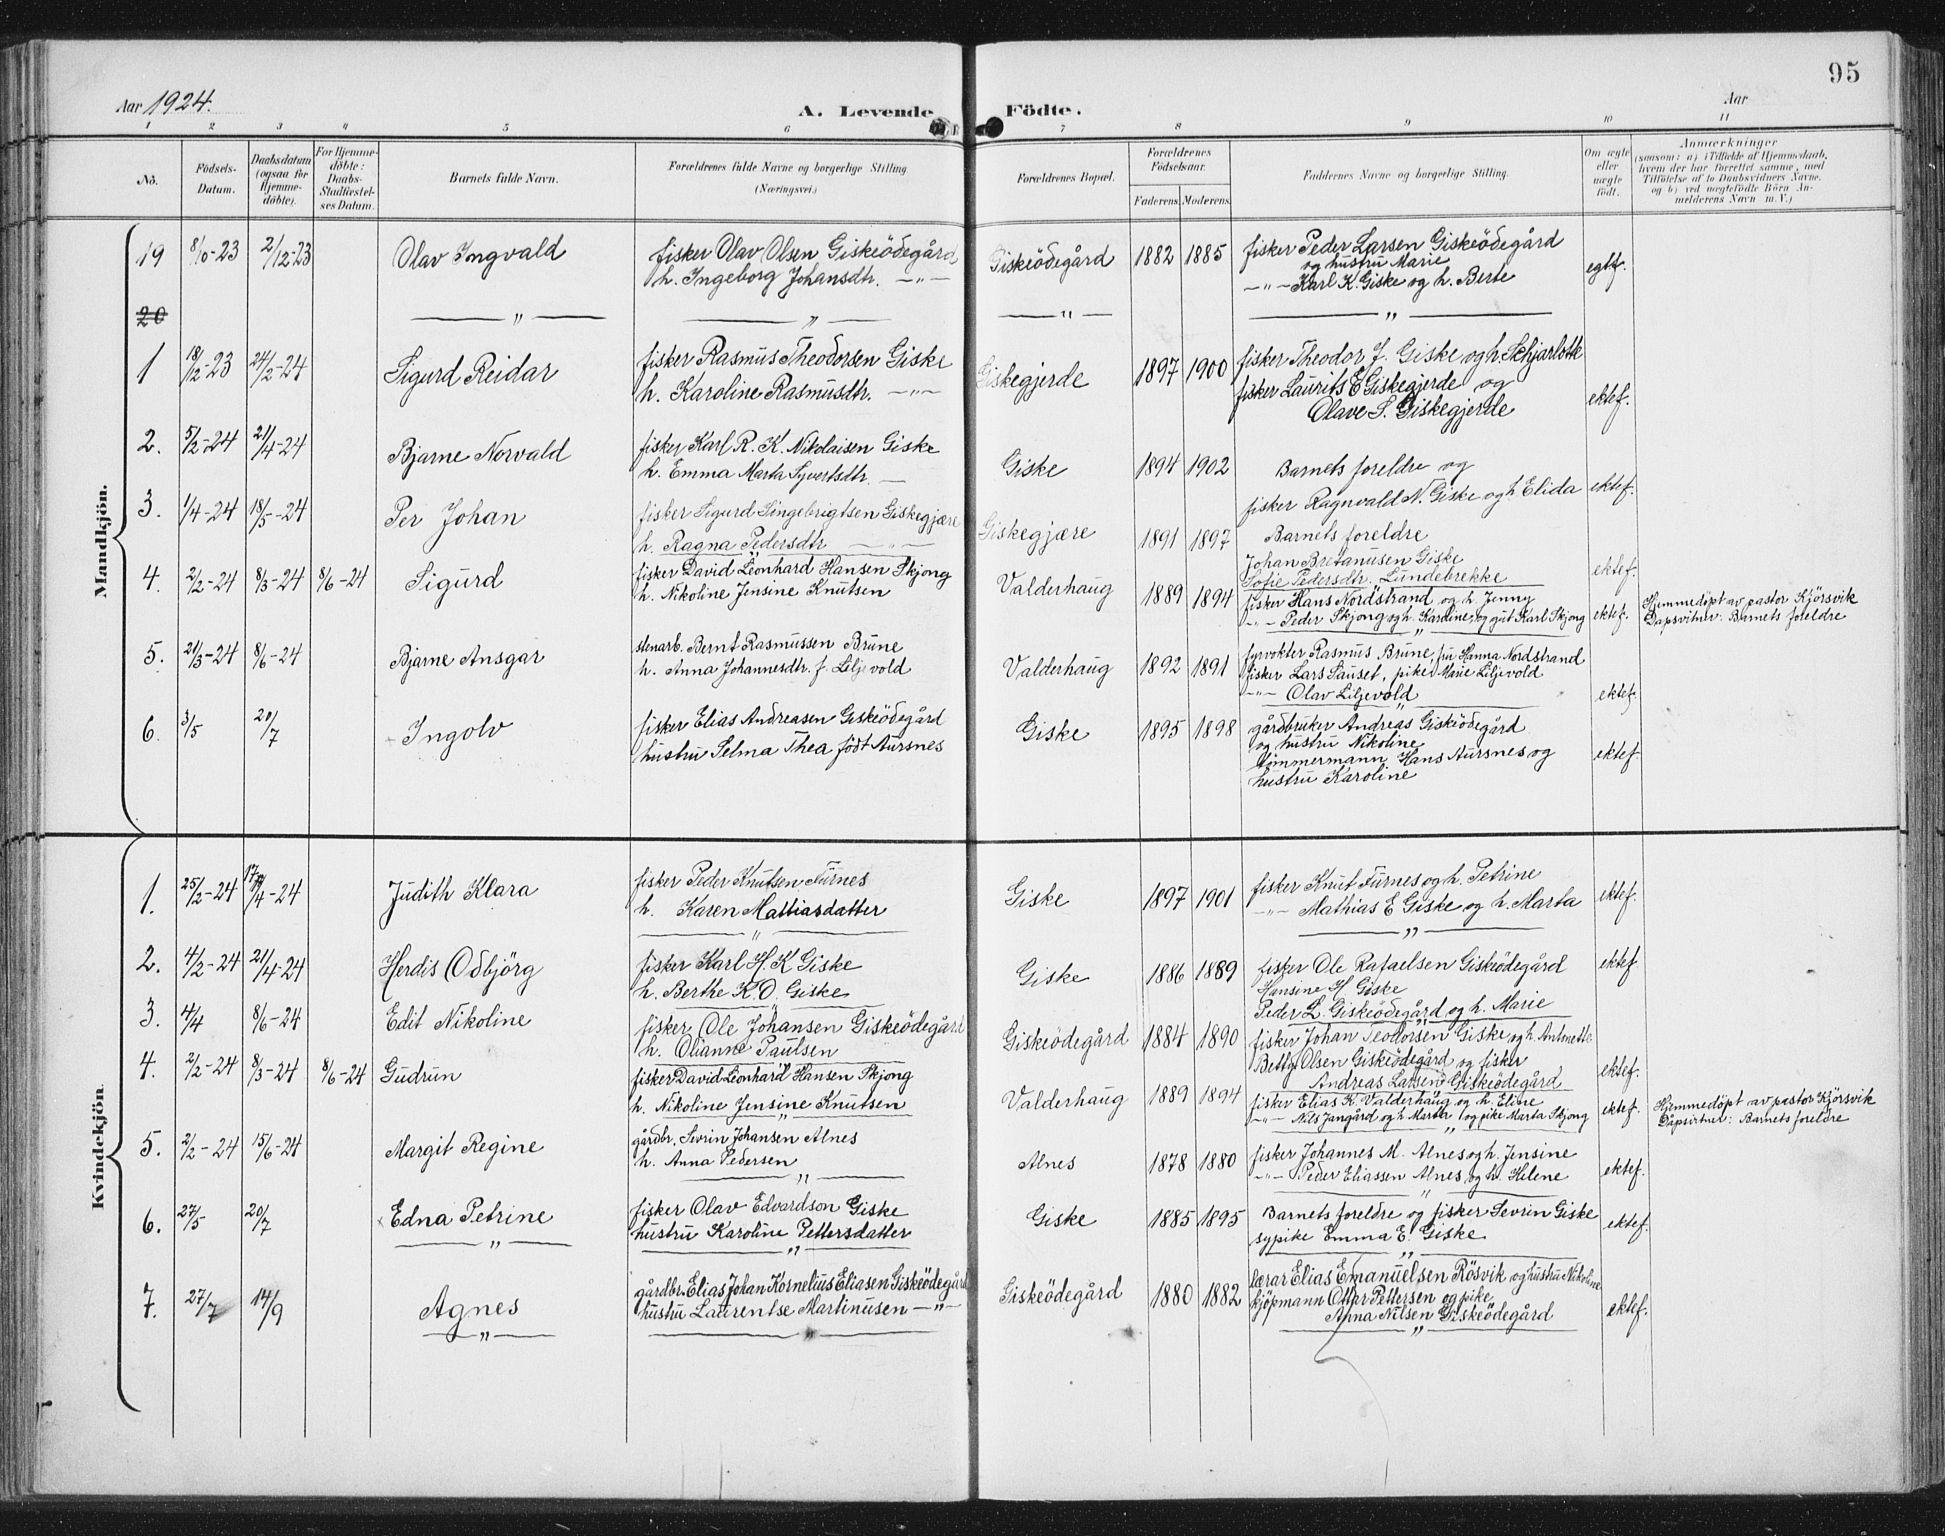 95
Aar 1924.
A. Levende Födte.
Aar
1 2 3 4 5 6 7 8 9 10 11
No.
Födsels-Datum.
Daabsdatum (ogsaa for Hjemme-döbte).
For Hjemme-döbte: Daabs-Stadfæstel-ses Datum.
Barnets fulde Navn.
Forældrenes fulde Navne og borgerlige Stilling (Næringsvei.)
Forældrenes Bopæl.
Forældrenes Födselsaar.
Faderens. Moderens.
Faddernes Navne og borgerlige Stilling.
Om ægte eller uægte födt.
Anmærkninger
(saasom: a) i Tilfælde af Hjemmedaab,
hvem der har forrettet samme, med
Tilföielse af to Daabsvidners Navne.
og b) ved uægtefödte Börn An-
melderens Navn m. V.)
Mandkjön.
19 8/10-23 2/12-23 Olav Ingvald
fisker Olav Olsen Giskeödegård
h. Ingeborg Johansdtr. —"—
Giskeödegård 1882 1885
fisker Peder Larsen Giskeödegård
og hustru Marie
—"— Karl K. Giske og h. Berte
egtf.
20 — " — — " — — " — — " —
1 18/12-23 24/2-24 Sigurd Reidar
fisker Rasmus Theodorsen Giske
h. Karoline Rasmusdtr. —"—
Giskegjerde 1897 1900
fisker Theodor J. Giske og h. Schjarlotte
fisker Laurits E Giskegjerde og
Olave S. Giskegjerde
ektef.
2. 5/2-24 21/4-24 Bjarne Norvald
fisker Karl R. K. Nikolaisen Giske
h. Emma Marta Syvertsdtr. —
Giske 1894 1902
Barnets foreldre og
fisker Ragnvald N. Giske og h Elida
ektef.
3. 1/4-24 18/5-24 Per Johan
fisker Sigurd Singebrigtsen Giskegjære
h. Ragna Pedersdtr —"—
Giskegjære 1891 1897
Barnets foreldre
Johan Bretanusen Giske
Sofie Pedersdtr. Lundebrekke
ektef.
4. 2/2-24 8/3-24 8/6-24 Sigurd
fisker David Leonhard Hansen Skjong
h. Nikoline Jensine Knutsen
Valderhaug 1889 1894
fisker Hans Nordstrand og h. Jenny
—"— Peder Skjong og h. Karoline, og gut Karl Skjong
ektef.
Hjemmedöpt av pastor Kjörsvik
Dåpsvitner: Barnets foreldre
5. 21/3-24 8/6-24 Bjarne Ansgar
stenarb. Bernt Rasmussen Brune
h. Anna Johannesdtr. f. Liljevold
Valderhaug 1892 1891
fyrvokter Rasmus Brune, fru Hanna Nordstrand
fisker Lars Sauset, pike Marie Liljevold
—"— Olav Liljevold
ektef.
6. 3/5 20/7 Ingolv
fisker Elias Andreasen Giskeödegård
hustru Selma Thea födt Aursnes
Giske 1895 1898
gårdbruker Andreas Giskeödegård
og hustru Nikoline
tömmermann Hans Aursnes og
hustru Karoline
ektef.
Kvindekjön
1. 25/2-24 17/4-24 Judith Klara
fisker Peder Knutsen Furnes
h. Karen Mattiasdatter
Giske 1897 1901
fisker Knut Furnes og h. Petrine
—"— Mathias E Giske og h. Marta
ektef.
2. 4/2-24 21/4-24 Herdis Odbjörg
fisker Karl H. K Giske
h. Berthe K. O. Giske
Giske 1886 1889
fisker Ole Rafaelsen Giskeödegård
Hansine H Giske
Peder L. Giskeödegård og h. Marie
ektef
3. 4/4 8/6-24 Edit Nikoline
fisker Ole Johansen Giskeödegård
h. Olianne Paulsen
Giskeödegård 1884 1890
fisker Johan Teodorsen Giske og h. Antonette
Betty Olsen Giskeödegård og fisker
Andreas Larsen Giskeödegård
ektef.
4. 2/2-24 8/3-24 8/6-24 Gudrun
fisker David Leonhard Hansen Skjong
h. Nikoline Jensine Knutsen
Valderhaug 1889 1894
fisker Elias K. Valderhaug og h. Elivre
—"— Nils Jangård og h Marta og pike Marta Skjong
ektef.
Hjemmedöpt av pastor Kjörsvik
Dåpsvitner: Barnets foreldre
5. 2/2-24 15/6-24 Margit Regine
gårdbr. Sevrin Johansen Alnes
h. Anna Pedersen
Alnes 1878 1880
fisker Johannes M. Alnes og h. Jensine
—"— Peder Eliassen Alnes og h. Helene
ektef.
6. 27/5 20/7 Edna Petrine
fisker Olav Edvardson Giske
hustru Karoline Pettersdatter
Giske 1885 1895
Barnets foreldre og fisker Sevrin Giske
sypike Emma E. Giske
ektef.
7. 27/7 14/9 Agnes
gårdbr. Elias Johan Kornelius Eliasen Giskeödegård
hustru Laurentse Martinusen —"—
Giskeödegård 1880 1882
lærar Elias Emanuelsen Rösvik og hustru Nikoline
kjöpmann Ottar Pettersen og pike
Anna Nilsen Giskeödegård
ektef.